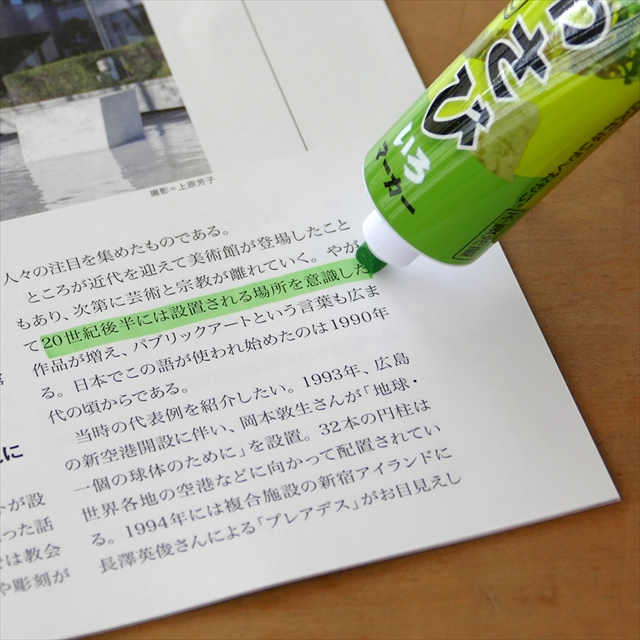 撮影=上原芳子
人々の注目を集めたものである。
ところが近代を迎えて美術館が登場したこと
もあり、次第に芸術と宗教が離れていく。やが
て20世紀後半には設置される場所を意識した
作品が増え、パブリックアートという言葉も広ま
る。日本でこの語が使われ始めたのは1990年
代の頃からである。
当時の代表例を紹介したい。1993年、広島
の新空港開設に伴い、岡本敦生さんが「地球・
一個の球体のために」を設置。32本の円柱は
世界各地の空港などに向かって配置されてい
る。1994年には複合施設の新宿アイランドに
長澤英俊さんによる「プレアデス」がお目見えし
に
が設
った話
は教会
や彫刻が
いろ
マーカー